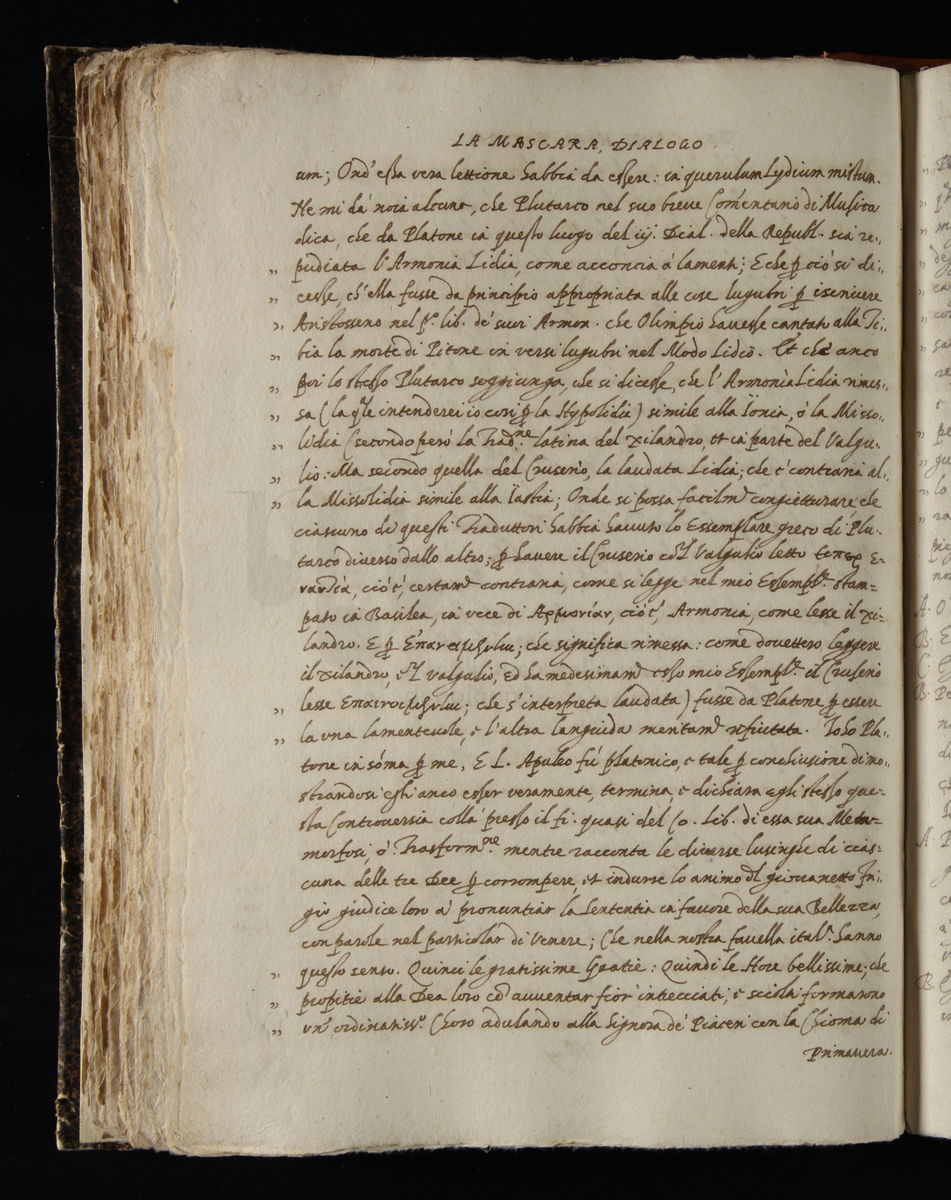 LA MASCARA, DIALOGO
um; Ond' essa vera lettione habbia da essere: in querulum Lydium mistum.
Ne mi dà noia alcuna, che Plutarco nel suo breve Com̃entario di Musica
dica, che da Platone in questo luogo del iij. Dial. della Republ. sia re-
„ pudiata l'Armonia Lidia, come acconcia à lamenti; E che ꝑ ciò si di-
„ cesse, ch'ella fusse da principio appropriata alle cose lugubri ꝑ iscriuere
„ Aristosseno nel pº. lib. de' suoi Armon. che Olimpio hauesse cantato alla Ti-
„ bia la morte di Pitone in versi lugubri nel Modo Lidio. Et che anco
„ poi lo stesso Plutarco soggiunga, che si dicesse, che l'Armonia Lidia rimes-
„ sa (la qle intenderei io così ꝑ la Hypolidia) simile alla Ionia, ò la Misso-
„ lidia (secondo però la Tradne. latina del Xilandro, et in parte del Valgu-
„ lio: Ma secondo quella del Cruserio, la laudata Lidia; che è contraria al-
„ la Missolidia simile alla Iastia; Onde si possa facilmte congietturare che
ciascuno di questi Traduttori habbia hauuto lo Essemplare greco di Plu-
tarco diverso dallo altro; ꝑ hauere il Cruserio col Valgulio letto
cioè, certamte contraria, come si legge nel mio Essemple. stam-
pato in Basilea, in vece di Αρμονίαν, cioè, Armonia, come lesse il Xi-
landro. E ꝑ che significa rimessa: come douettero leggere
il Xilandro, e'l Valgulio, ed ha medesimamte esso mio Essemple. il Cruserio
„ lesse che s'interpreta laudata) fusse da Platone ꝑ essere
„ la una lamenteuole, e l'altra languida meritamte rifiutata. Io ho Pla-
tone in som̃a ꝑ me, E L. Apuleo fù platonico, e tale ꝑ conclusione dimo-
strandosi egli anco esser veramente, termina, e dichiara egli stesso que-
sta Controversia colà presso il fi. quasi del Xo. Lib. di essa sua Meta-
morfosi, ò Trasformne. mentre racconta le diverse lusinghe di cias-
cuna delle tre Dee ꝑ corrompere, et indurse lo animo del giovanetto Fri-
gio giudice loro à pronuntiar la Sententia in favore della sua Bellezza,
con parole nel particolar di Venere; Che nella nostra favella itala. hanno
„ questo senso. Quinci le gratissime Gratie: Quindi le Hore bellissime; che
„ propitie alla Dea loro co'l auuentar fior' intrecciati, e sciolti formarono
„ un' ordinatissº. Choro adulando alla Signora de' Piaceri con la Chioma di
Primavera.